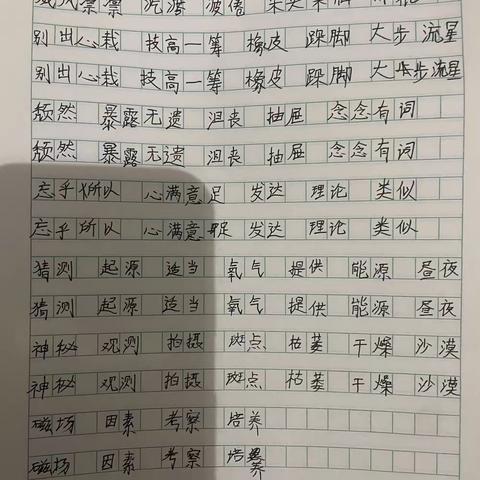 威风凛凛 沉溺 疲倦
别出心裁 技高一筹 橡皮 跺脚 大步流星
别出心裁 技高一筹 橡皮 跺脚 大步流星
颓然 暴露无遗 沮丧 抽屉 念念有词
颓然 暴露无遗 沮丧 抽屉 念念有词
忘乎所以 心满意足 发达 理论 类似
忘乎所以 心满意足 发达 理论 类似
猜测 起源 适当 氧气 提供 能源 昼夜
猜测 起源 适当 氧气 提供 能源 昼夜
神秘 观测 拍摄 斑点 枯萎 干燥 沙漠
神秘 观测 拍摄 斑点 枯萎 干燥 沙漠
磁场 因素 考察 培养
磁场 因素 考察 培养